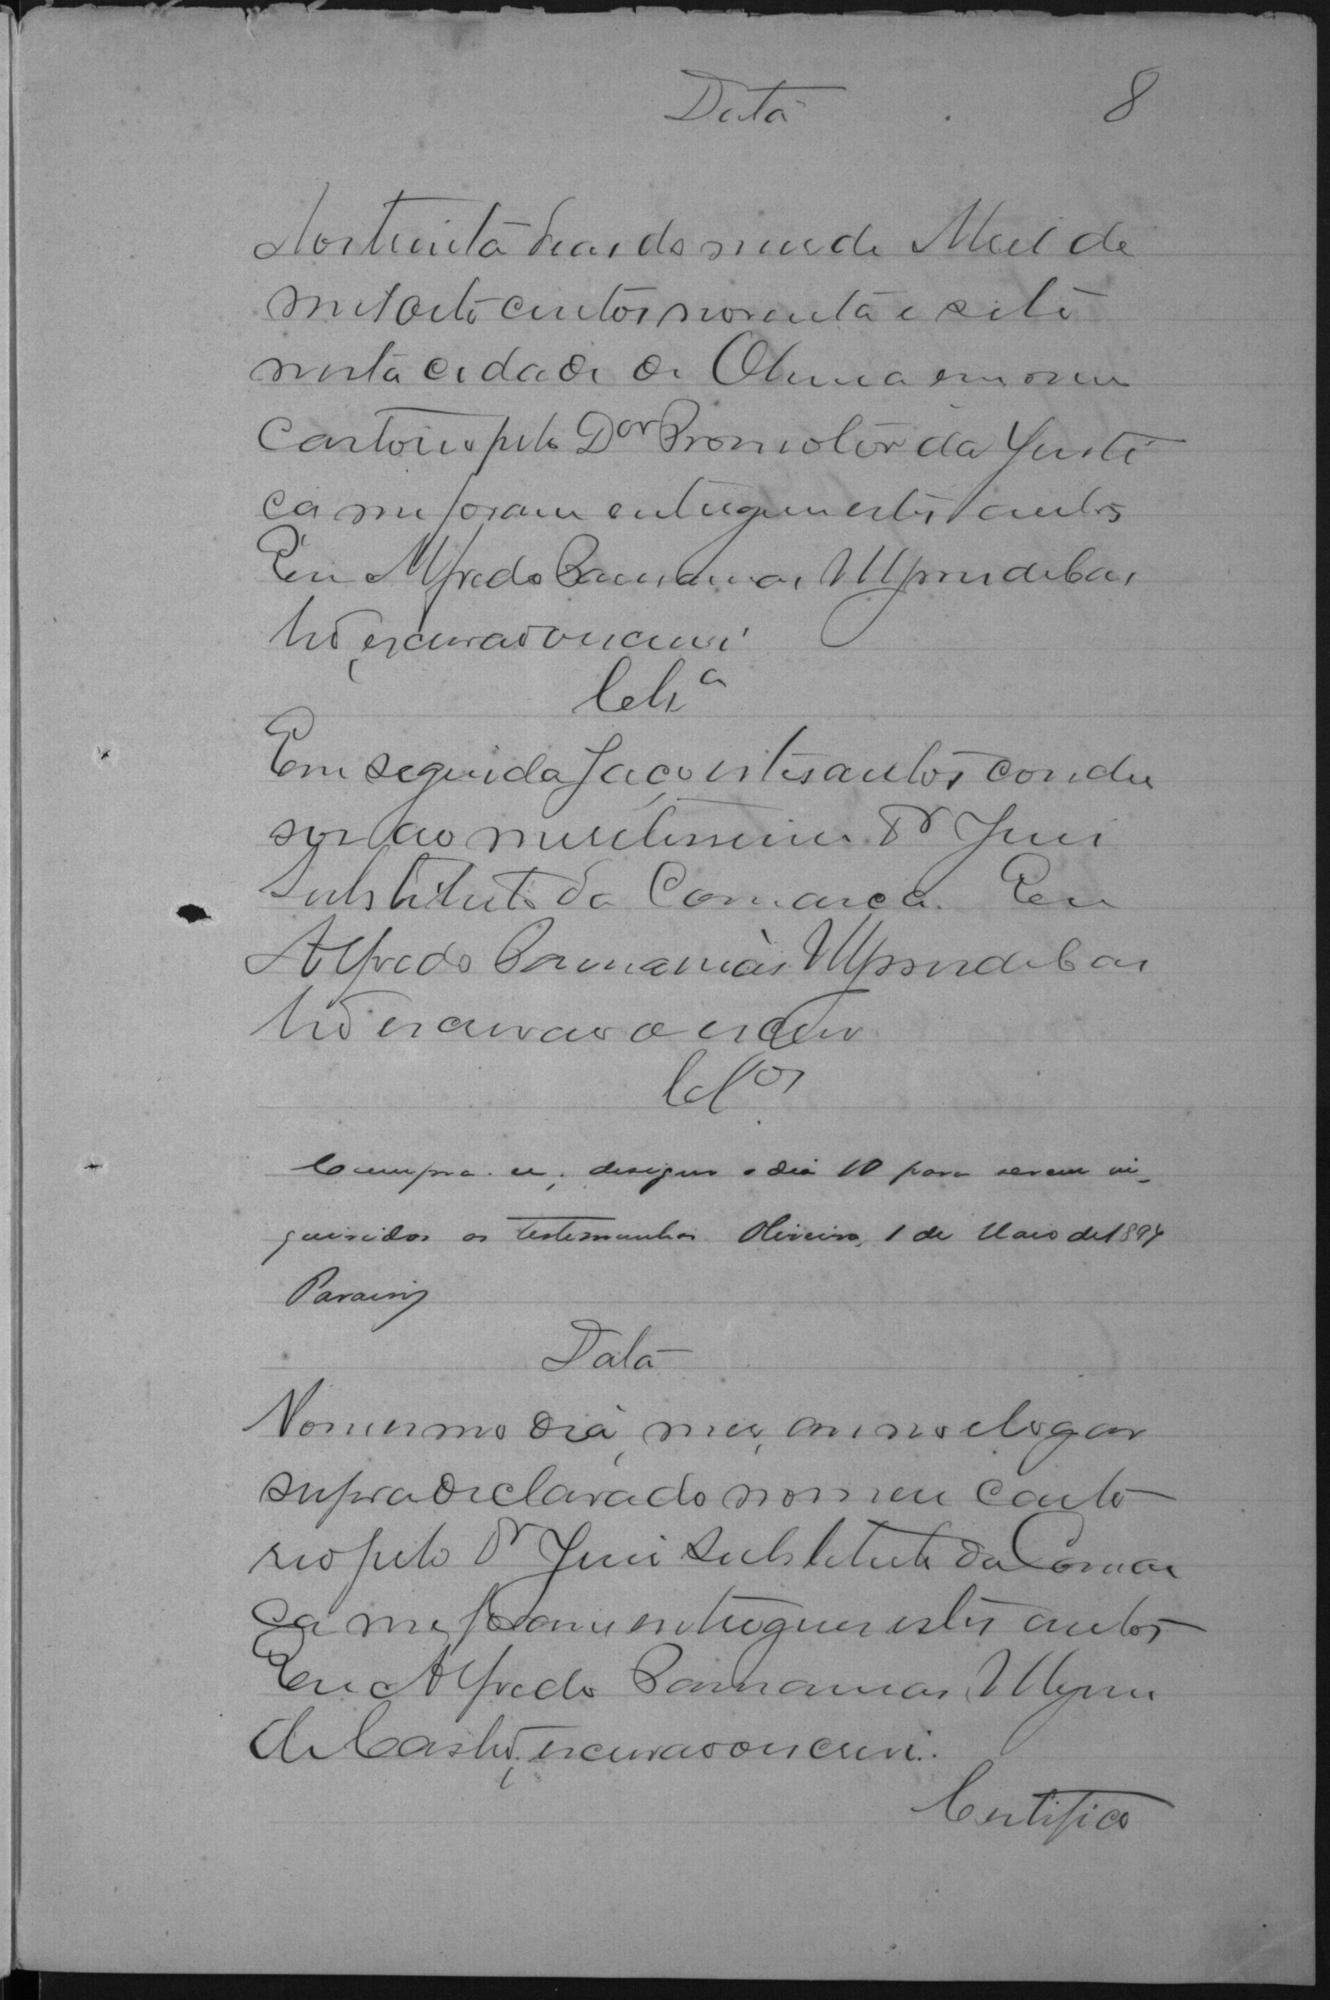 Data 8
Aos trinta dias do mes de Abril de
mil oito centos noventa e sete
nesta cidade de em meu
Cartorio pelo Dor Promotor da Justi
ça me foram entregues estes autos
Eu Alfredo de Cas
tro, escrivão o escrevi
Clsa
Em seguida faço estes autos conclu
sos ao meretissimo Dr Juis
Substituto da Comarca. Eu
Alfredo de Cas
tro escrivão o escrevi
Clos
Cumpra-se; designo o dia 10 para serem in-
queridas as testemunhas. 1 de Maio de 1897
Data
No mesmo dia, mes, anno e logar
supra declarado no meu carto
rio pelo Dr Juis Substituto da Comar
ca me foram entregues estes autos
Eu Alfredo
de Castro, escrivão o escrevi.
Certifico